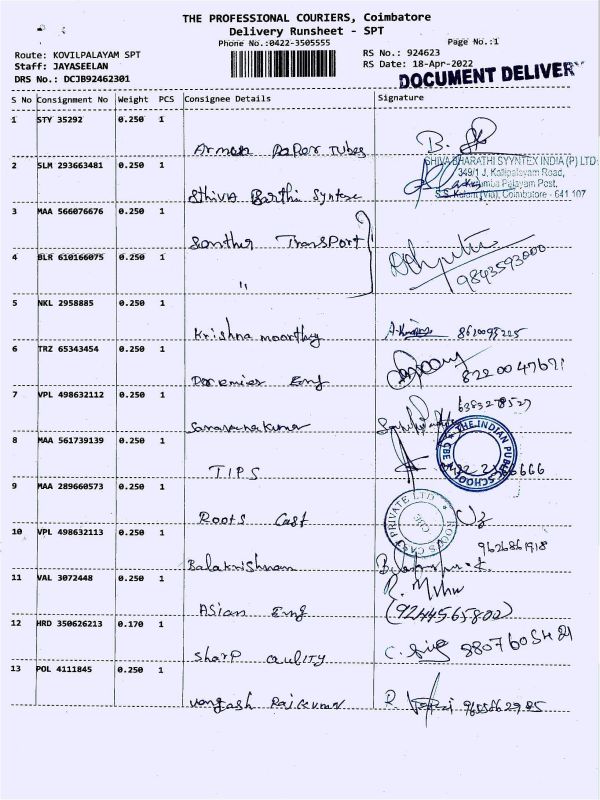 THE PROFESSIONAL COURIERS, Coimbatore
Delivery Runsheet - SPT
Phone No.:0422-3505555
Page No.:1
Route: KOVILPALAYAM SPT
RS No.: 924623
Staff: JAYASEELAN
RS Date: 18-Apr-2022
DRS No.: DCJB92462301
DOCUMENT DELIVERY
S No Consignment No Weight PCS Consignee Details Signature
1 STY 35292 0.250 1
Paper Tubes
B.
2 SLM 293663481 0.250 1
Shiva Barthi Syntex
SHIVA BHARATHI SYYNTEX INDIA (P) LTD
349/1 J, Kallipalayam Road,
Palayam Post,
S.S. Kulam (Via), Coimbatore - 641 107
3 MAA 566076676 0.250 1
Santher Transport
4 BLR 610166075 0.250 1
"
9843593000
5 NKL 2958885 0.250 1
Krishna moorthy
6 TRZ 65343454 0.250 1
Engg
8220047671
7 VPL 498632112 0.250 1
Saravanakumar
6383278527
8 MAA 561739139 0.250 1
TIPS
THE INDIAN PUBLIC SCHOOL
CBE
9 MAA 289660573 0.250 1
Roots Cast
ROOTS CAST PRIVATE LTD
CBE
10 VPL 498632113 0.250 1
Balakrishnam
9626861918
11 VAL 3072448 0.250 1
Asian Eng
(9244565802)
12 HRD 350626213 0.170 1
Sharp Quility
C.
13 POL 4111845 0.250 1
Rajkumar
R.